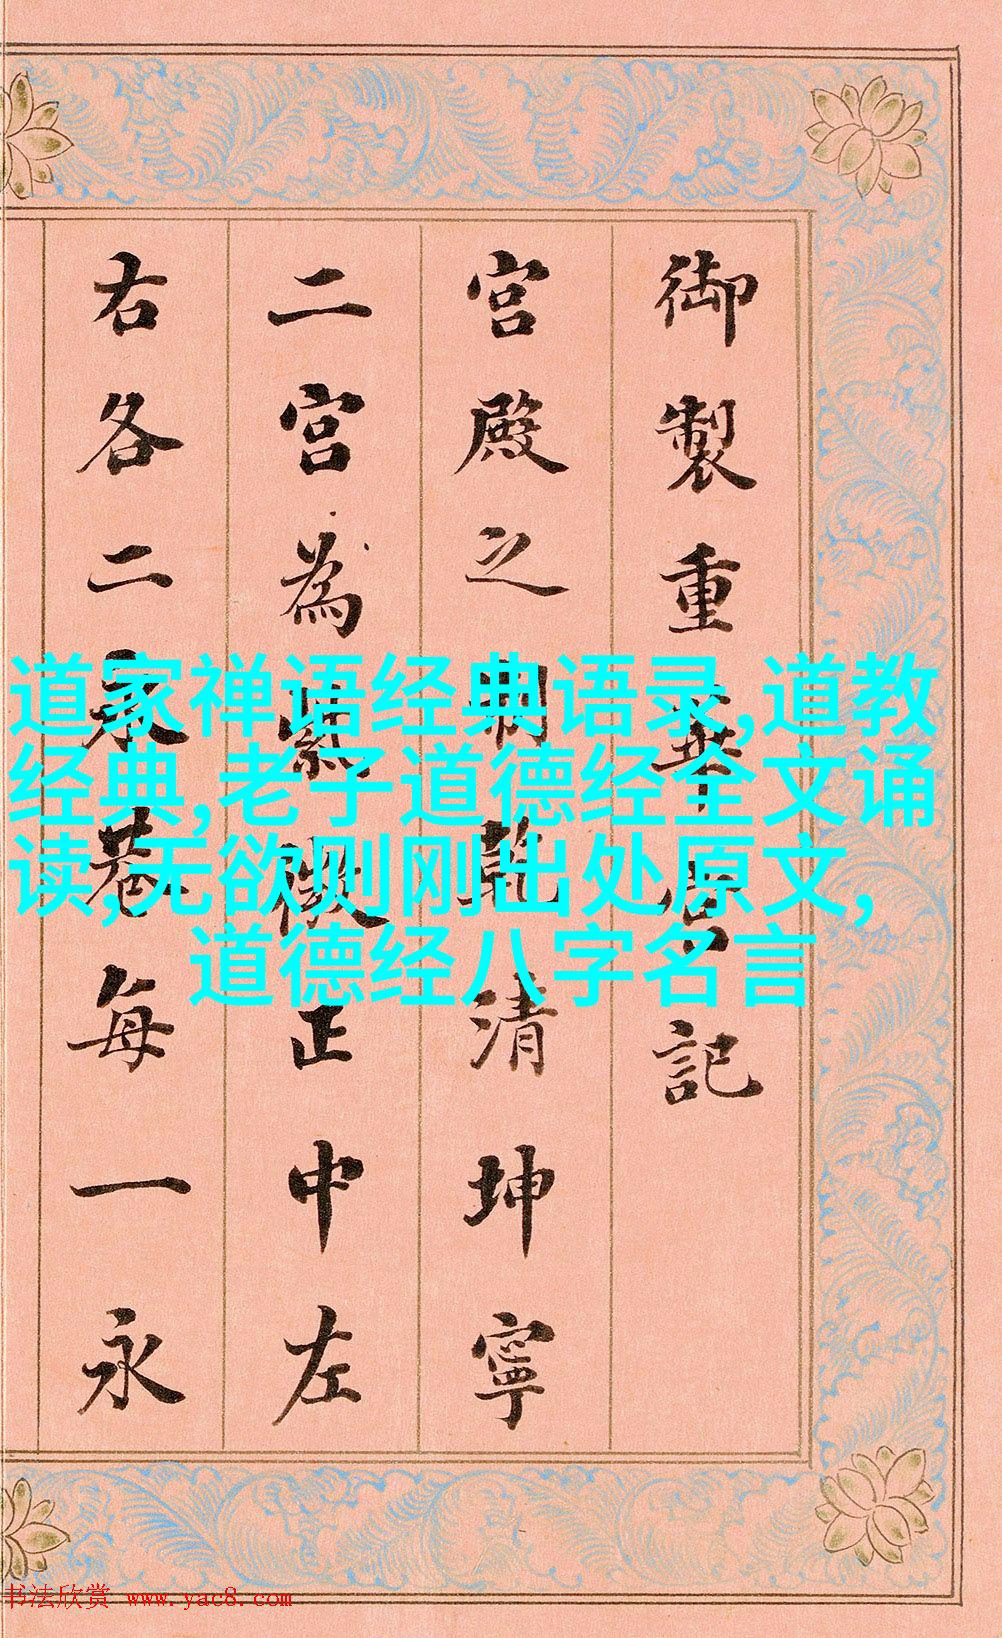 御製重華宮記
宮殿之制乾清坤寧
二宮為紫微正中左
右各二永巷每一永
道家禅语经典语录,道教
经典,老子道德经全文诵
读,无欲则刚出处原文,
道德经八字名言
书法欣赏 www.yac8.com